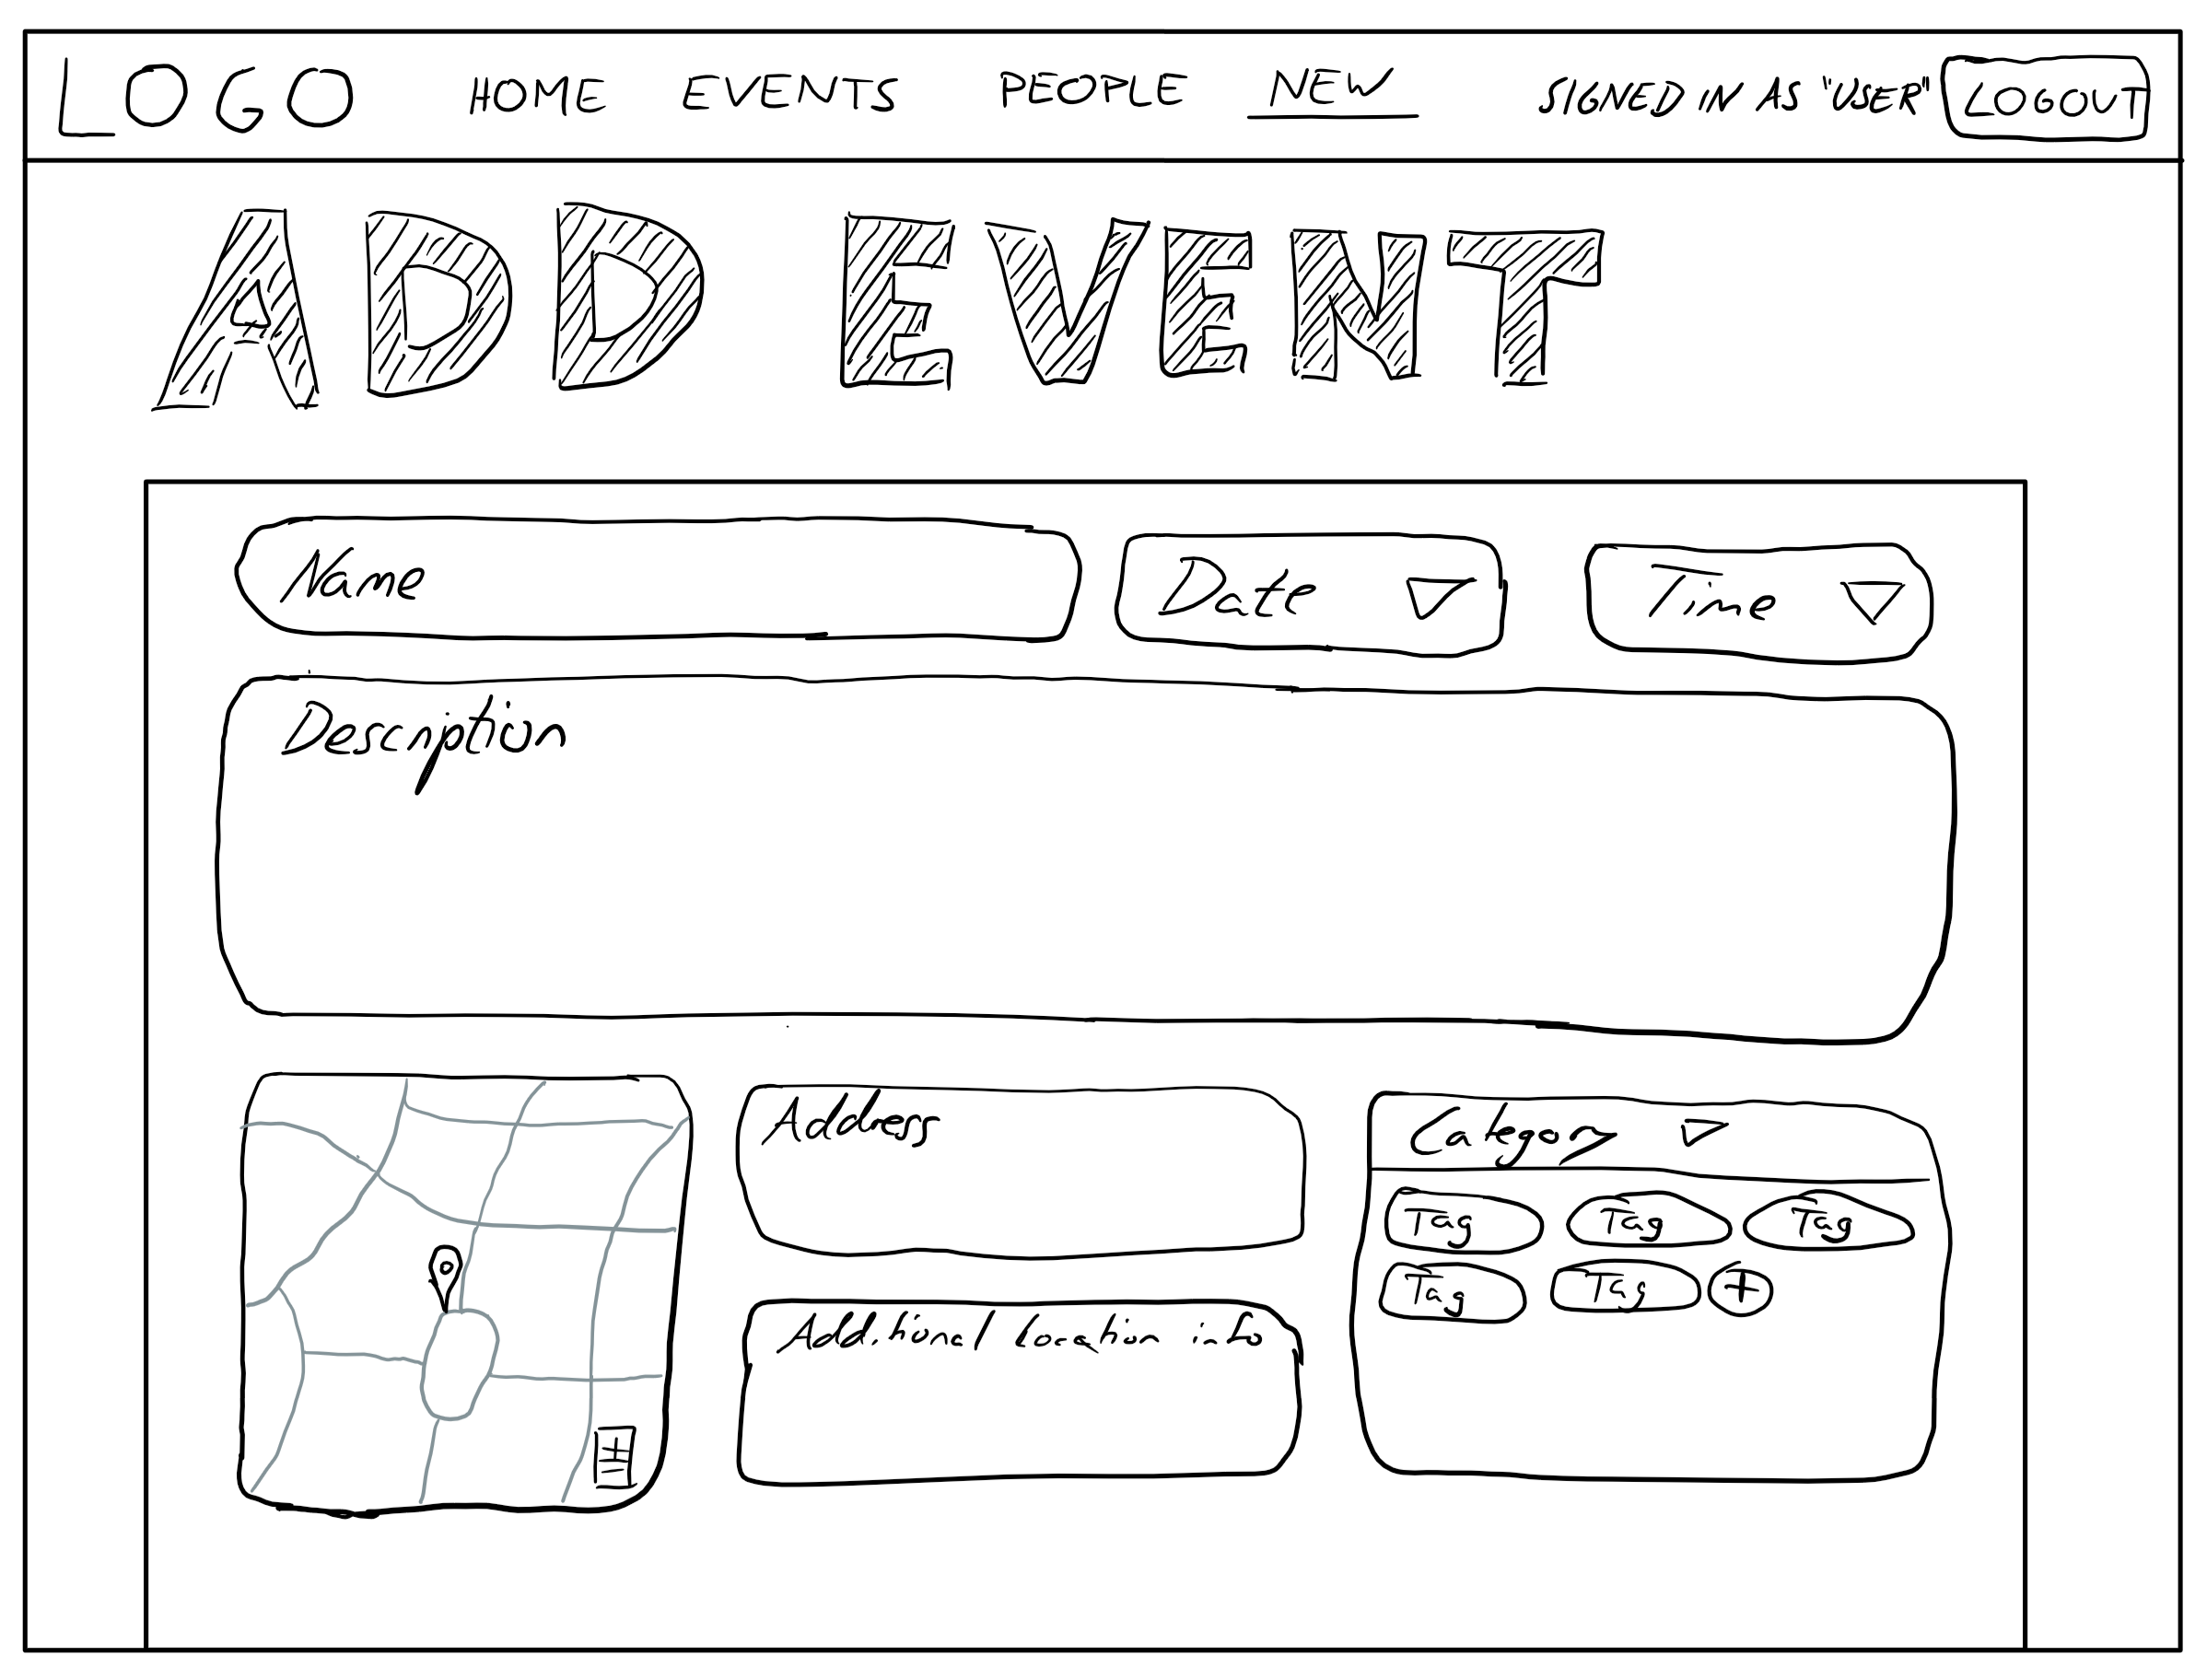 LOGO HOME EVENTS PEOPLE NEW SIGNED IN AS "USER" LOGOUT
ADD EVENT
Name Date Time
Description
Address
Additional location info
Category
Tag Tag Tag
Tag Tag +